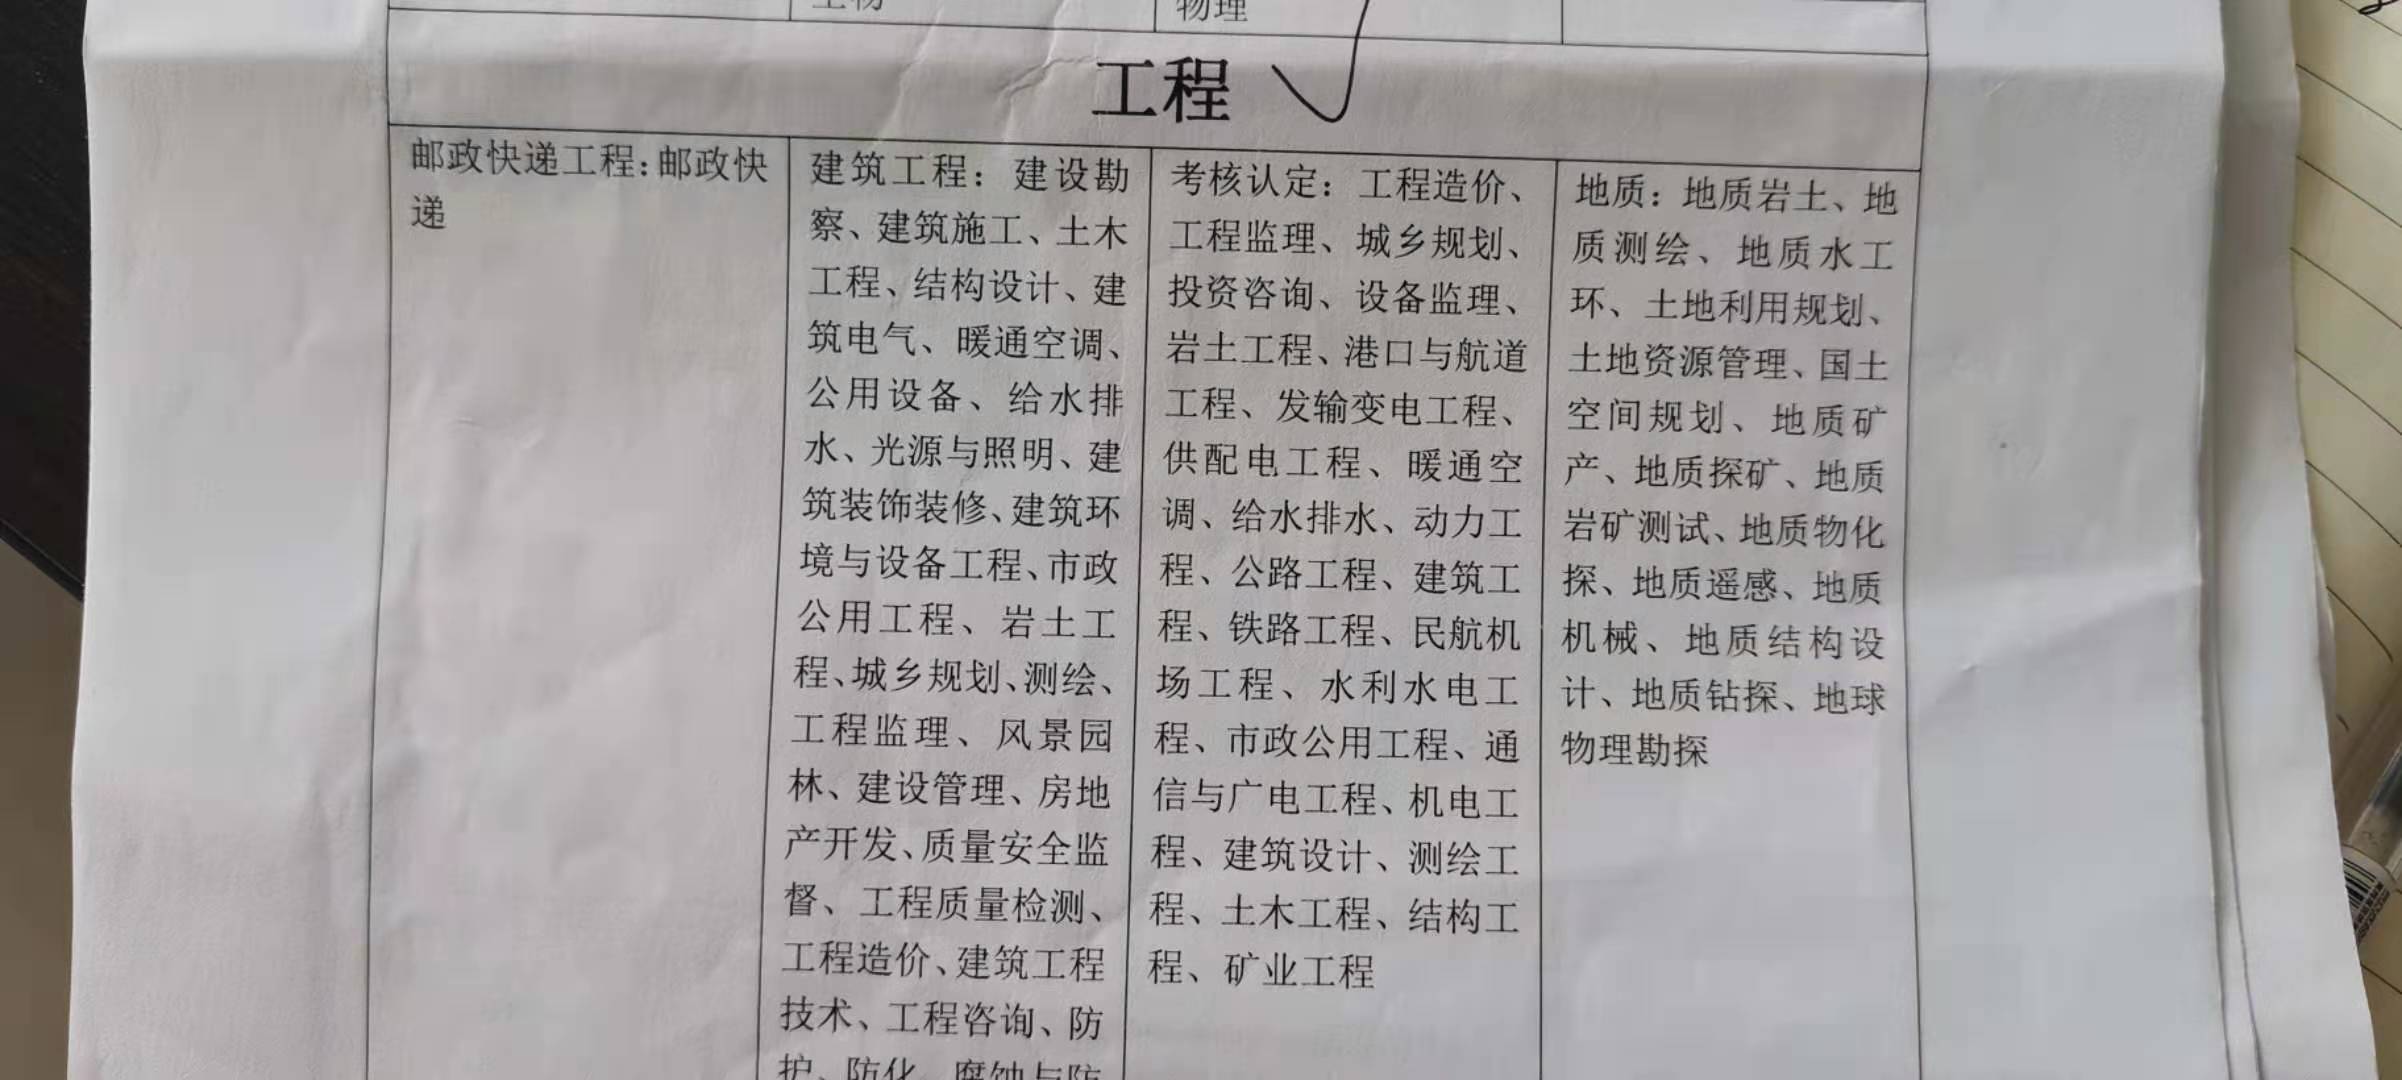 生物
物理
工程
邮政快递工程:邮政快
递
建筑工程：建设勘
察、建筑施工、土木
工程、结构设计、建
筑电气、暖通空调、
公用设备、给水排
水、光源与照明、建
筑装饰装修、建筑环
境与设备工程、市政
公用工程、岩土工
程、城乡规划、测绘、
工程监理、风景园
林、建设管理、房地
产开发、质量安全监
督、工程质量检测、
工程造价、建筑工程
技术、工程咨询、防
护、防化、腐蚀与防
考核认定：工程造价、
工程监理、城乡规划、
投资咨询、设备监理、
岩土工程、港口与航道
工程、发输变电工程、
供配电工程、暖通空
调、给水排水、动力工
程、公路工程、建筑工
程、铁路工程、民航机
场工程、水利水电工
程、市政公用工程、通
信与广电工程、机电工
程、建筑设计、测绘工
程、土木工程、结构工
程、矿业工程
地质：地质岩土、地
质测绘、地质水工
环、土地利用规划、
土地资源管理、国土
空间规划、地质矿
产、地质探矿、地质
岩矿测试、地质物化
探、地质遥感、地质
机械、地质结构设
计、地质钻探、地球
物理勘探